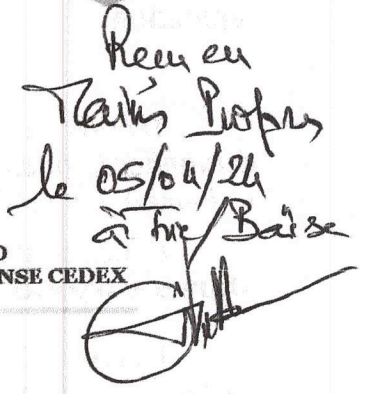 Reçu en
Mains Propres
le 05/04/24
à Trie/Baïse
NSE CEDEX